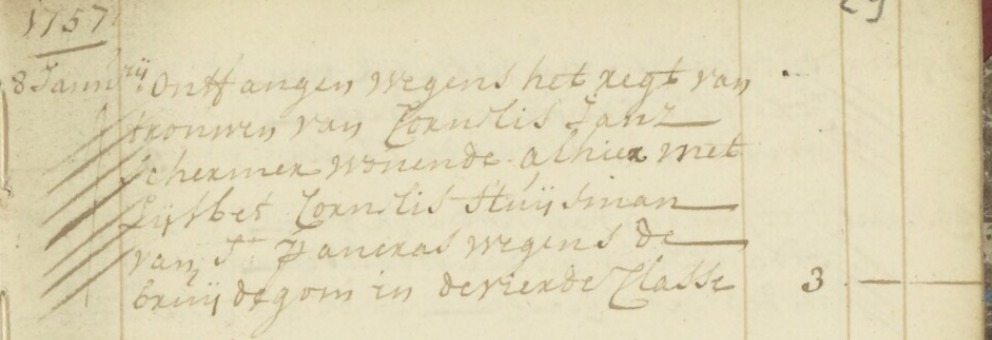 1757
29
8 Jannrij Ontfangen wegens het regt van
trouwen van Cornelis Janz
Schermer wonende alhier met
Lijsbet Cornelis Stuijsman
van St Pancras wegens de
bruijdegom in de vierde Classe 3 — —